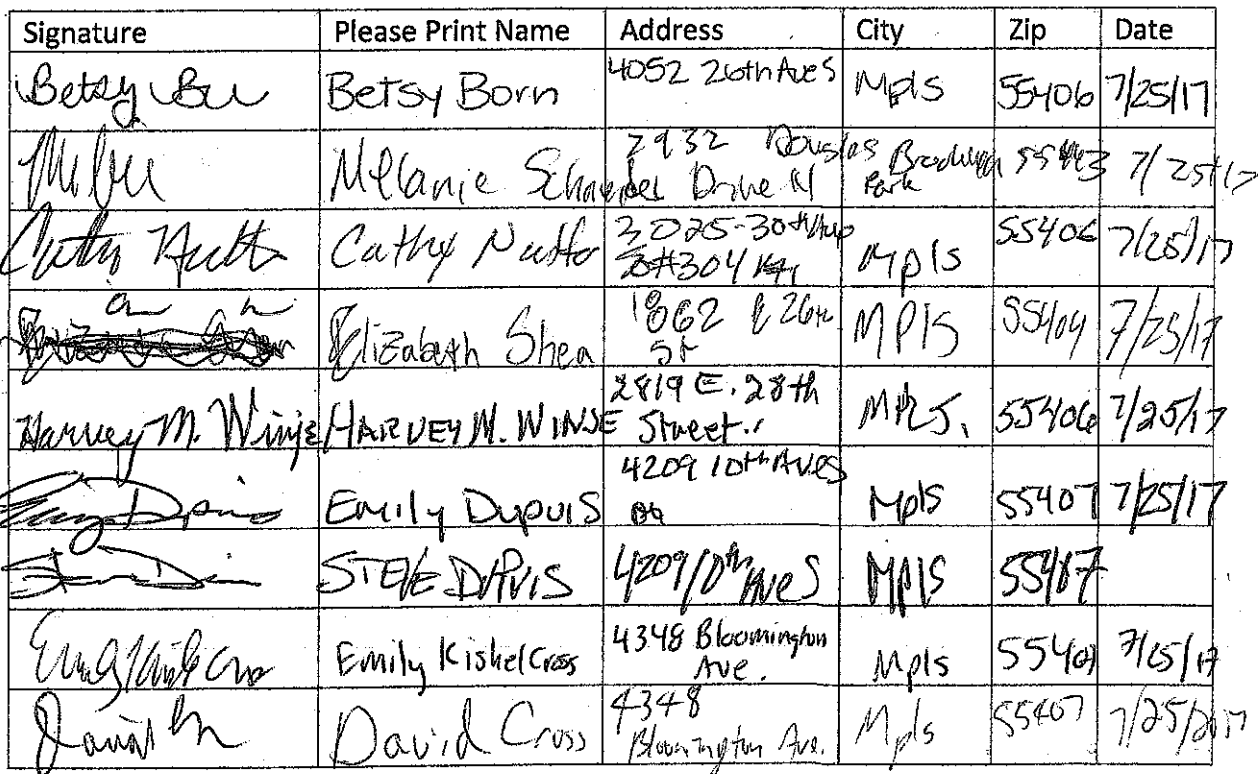 Signature Please Print Name Address City Zip Date
Betsy Betsy Born 4052 26th Ave S Mpls 55406 7/25/17
Melanie Schneider 2932 Douglas Drive N Brooklyn Park 7/25/17
Cathy Cathy 3025-30th Ave #304 Mpls 55406 7/25/17
Elizabeth Shea 1862 E 26th St MPLS 55404 7/25/17
Harvey M. Winje HARVEY M. WINJE 2819 E. 28th Street. MPLS. 55406 7/25/17
Emily Dupuis 4209 10th Ave S Mpls 55407 7/25/17
STEVE DUPUIS 4209 10th Ave S Mpls 55407
Emily Kiskel Cross 4348 Bloomington Ave. Mpls 55407 7/25/17
David David Cross 4348 Bloomington Ave. Mpls 55407 7/25/2017